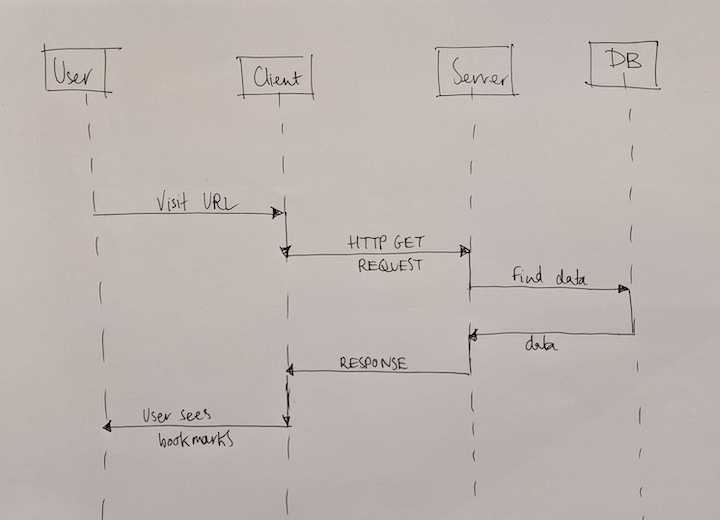 User
Client
Server
DB
Visit URL
HTTP GET
REQUEST
Find data
data
RESPONSE
User sees
bookmarks